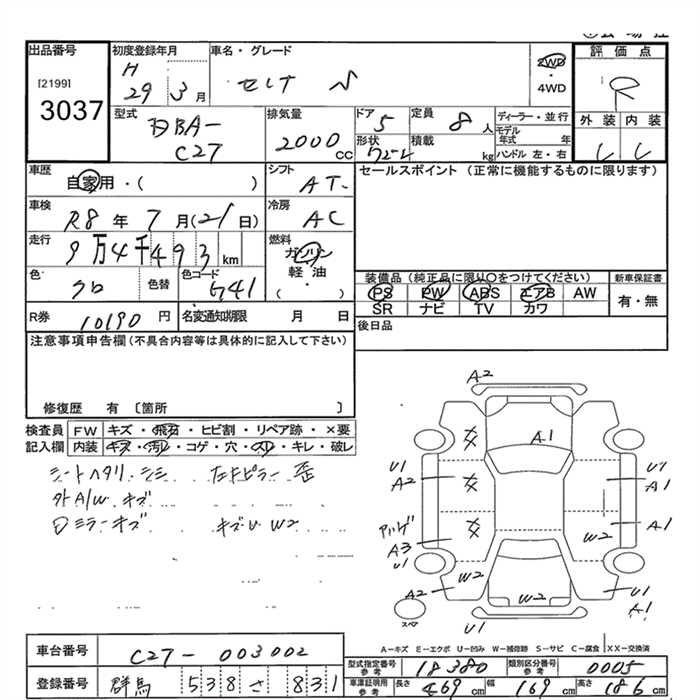 出品番号 初度登録年月 車名・グレード 2WD 評価点
[2199] H ・ R
3037 29 3月 セレナ 4WD
外装 内装
型式 排気量 ドア 5 定員 8人 ディーラー・並行
DBA- 2000 cc モデル年式 年
C27 形状 積載 kg ハンドル 左・右 L L
車歴 シフト セールスポイント (正常に機能するものに限ります)
自家用・( ) AT
車検 冷房
R8年7月(21日) AC
走行 燃料
9万4千493km ガソリン
色 色替 色コード 軽油
クロ G41 ( )
装備品 (純正品に限り○をつけてください) 新車保証書
PS PW ABS エアB AW 有・無
SR ナビ TV カワ
R券 10190円 名変通知期限 月 日 後日品
注意事項申告欄(不具合内容等は具体的に記入して下さい)
修復歴 有 〔箇所 〕
検査員 FW キズ・飛石・ヒビ割・リペア跡・×要
記入欄 内装 キズ・汚れ・コゲ・穴・スリ・キレ・破レ
シートヘタリ シミ
外A/W キズ
ミラーキズ キズ W2
A2
A1
U1
A2
U1
A1
A1
A3
U1
W2
W2
W2
A2
U1
A1
U1
スペ
A-キズ E-エクボ U-凹み W-補修跡 S-サビ C-腐食 XX-交換済
車台番号 C27-003002
型式指定番号 参考 18380 類別区分番号 参考 0005
登録番号 群馬 538 さ 831
車庫証明用 参考 長さ 469cm 幅 169cm 高さ 186cm